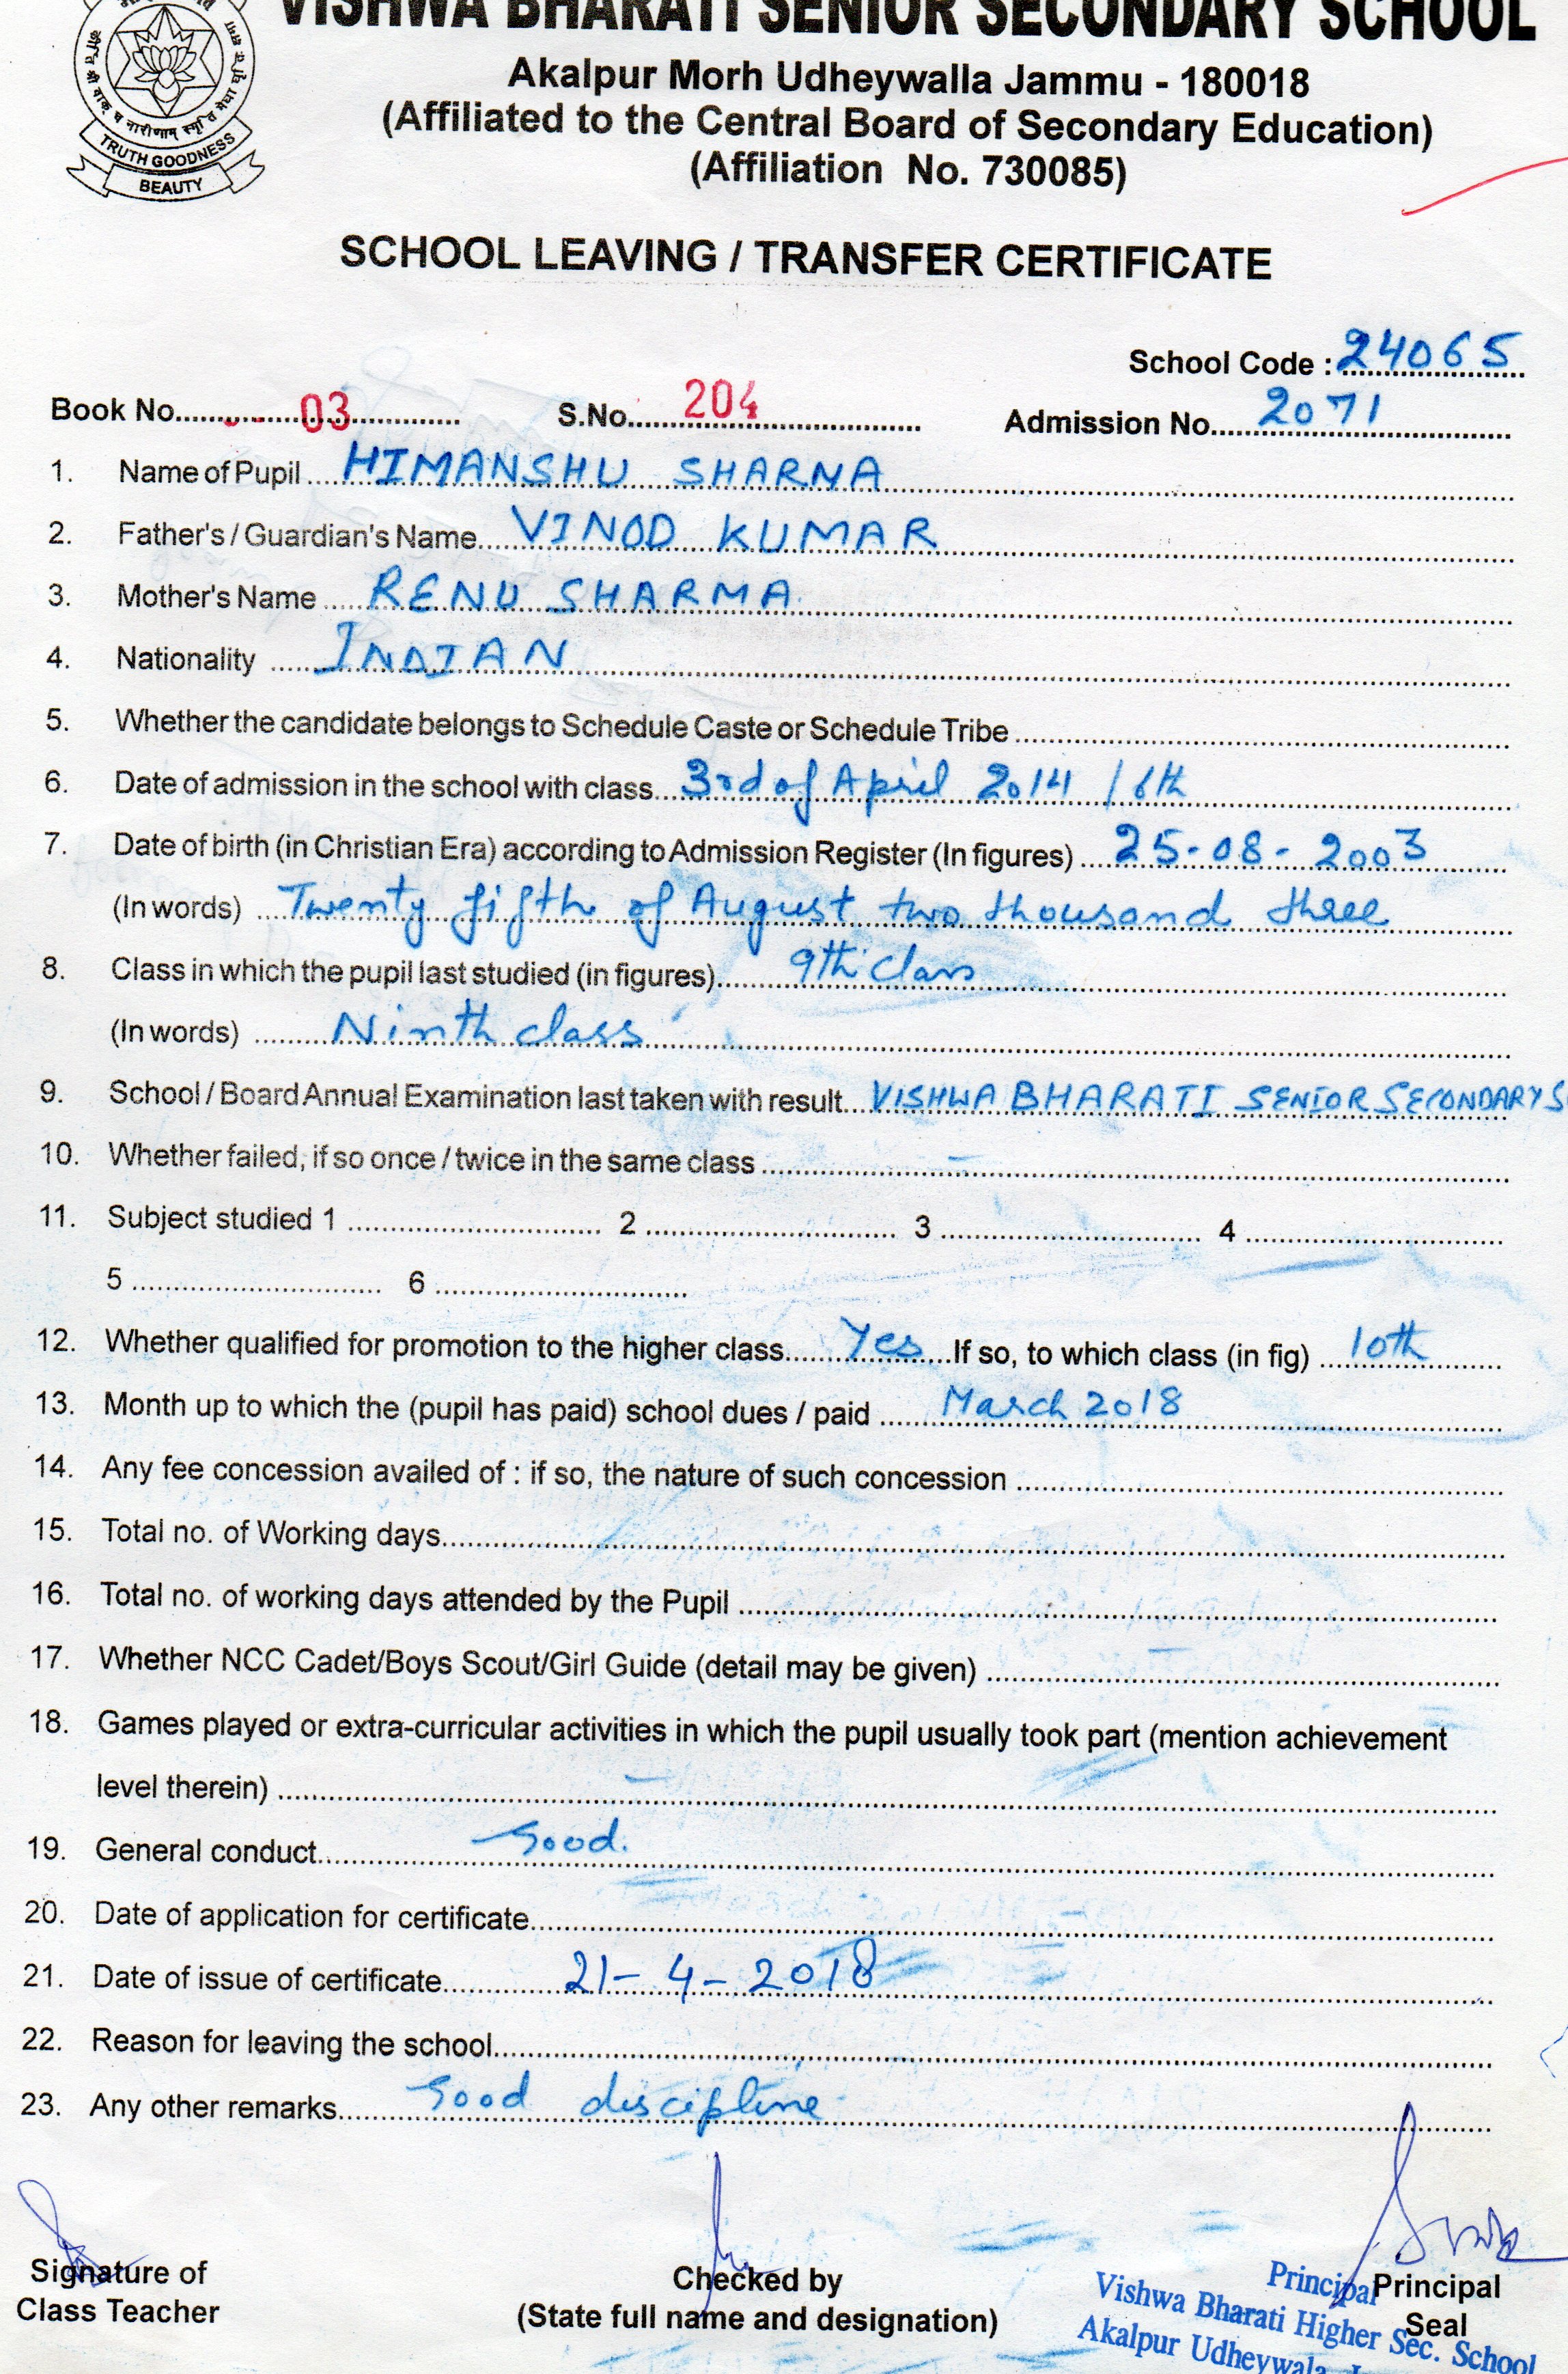 VISHWA BHARATI SENIOR SECONDARY SCHOOL
Akalpur Morh Udheywalla Jammu - 180018
(Affiliated to the Central Board of Secondary Education)
(Affiliation No. 730085)
TRUTH GOODNESS
BEAUTY
SCHOOL LEAVING / TRANSFER CERTIFICATE
School Code : 24065
Book No. 03 S.No. 204 Admission No. 2071
1. Name of Pupil HIMANSHU SHARMA
2. Father's / Guardian's Name VINOD KUMAR
3. Mother's Name RENU SHARMA
4. Nationality INDIAN
5. Whether the candidate belongs to Schedule Caste or Schedule Tribe
6. Date of admission in the school with class 3rd of April 2014 / 6th
7. Date of birth (in Christian Era) according to Admission Register (In figures) 25-08-2003
(In words) Twenty fifth of August two thousand three
8. Class in which the pupil last studied (in figures) 9th class
(In words) Ninth class
9. School / Board Annual Examination last taken with result VISHWA BHARATI SENIOR SECONDARY S
10. Whether failed, if so once / twice in the same class –
11. Subject studied 1 2 3 4
5 6
12. Whether qualified for promotion to the higher class Yes If so, to which class (in fig) 10th
13. Month up to which the (pupil has paid) school dues / paid March 2018
14. Any fee concession availed of : if so, the nature of such concession
15. Total no. of Working days
16. Total no. of working days attended by the Pupil
17. Whether NCC Cadet/Boys Scout/Girl Guide (detail may be given) –
18. Games played or extra-curricular activities in which the pupil usually took part (mention achievement
level therein) –
19. General conduct Good.
20. Date of application for certificate
21. Date of issue of certificate 21-4-2018
22. Reason for leaving the school
23. Any other remarks Good discipline
Signature of
Class Teacher
Checked by
(State full name and designation)
Principal
Seal
Principal
Vishwa Bharati Higher Sec. School
Akalpur Udheywala